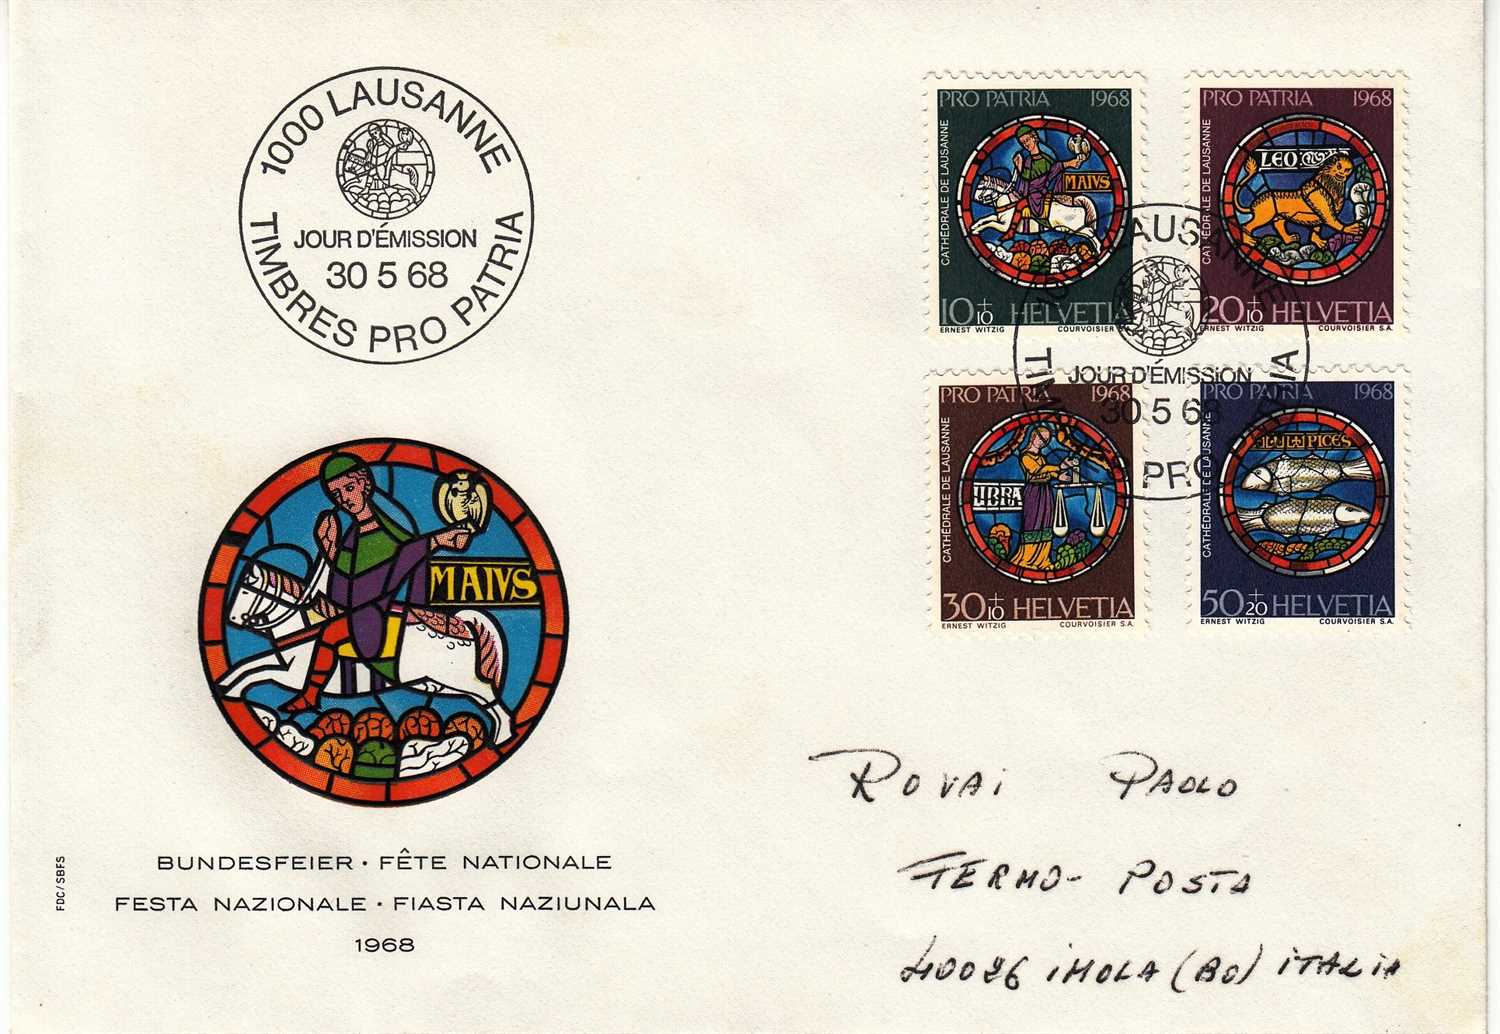 1000 LAUSANNE
JOUR D'ÉMISSION
30 5 68
TIMBRES PRO PATRIA
PRO PATRIA 1968
CATHÉDRALE DE LAUSANNE
MAIVS
10+10 HELVETIA
ERNEST WITZIG COURVOISIER S.A.
PRO PATRIA 1968
CATHÉDRALE DE LAUSANNE
LEO
20+10 HELVETIA
ERNEST WITZIG COURVOISIER S.A.
LAUSANNE
JOUR D'ÉMISSION
30 5 68
PRO PATRIA 1968
CATHÉDRALE DE LAUSANNE
LIBRA
30+10 HELVETIA
ERNEST WITZIG COURVOISIER S.A.
PRO PATRIA 1968
CATHÉDRALE DE LAUSANNE
PICES
50+20 HELVETIA
ERNEST WITZIG COURVOISIER S.A.
MAIVS
BUNDESFEIER · FÊTE NATIONALE
FESTA NAZIONALE · FIASTA NAZIUNALA
1968
FDC/SBFS
ROVAI PAOLO
FERMO - POSTA
40026 IMOLA (BO) ITALIA